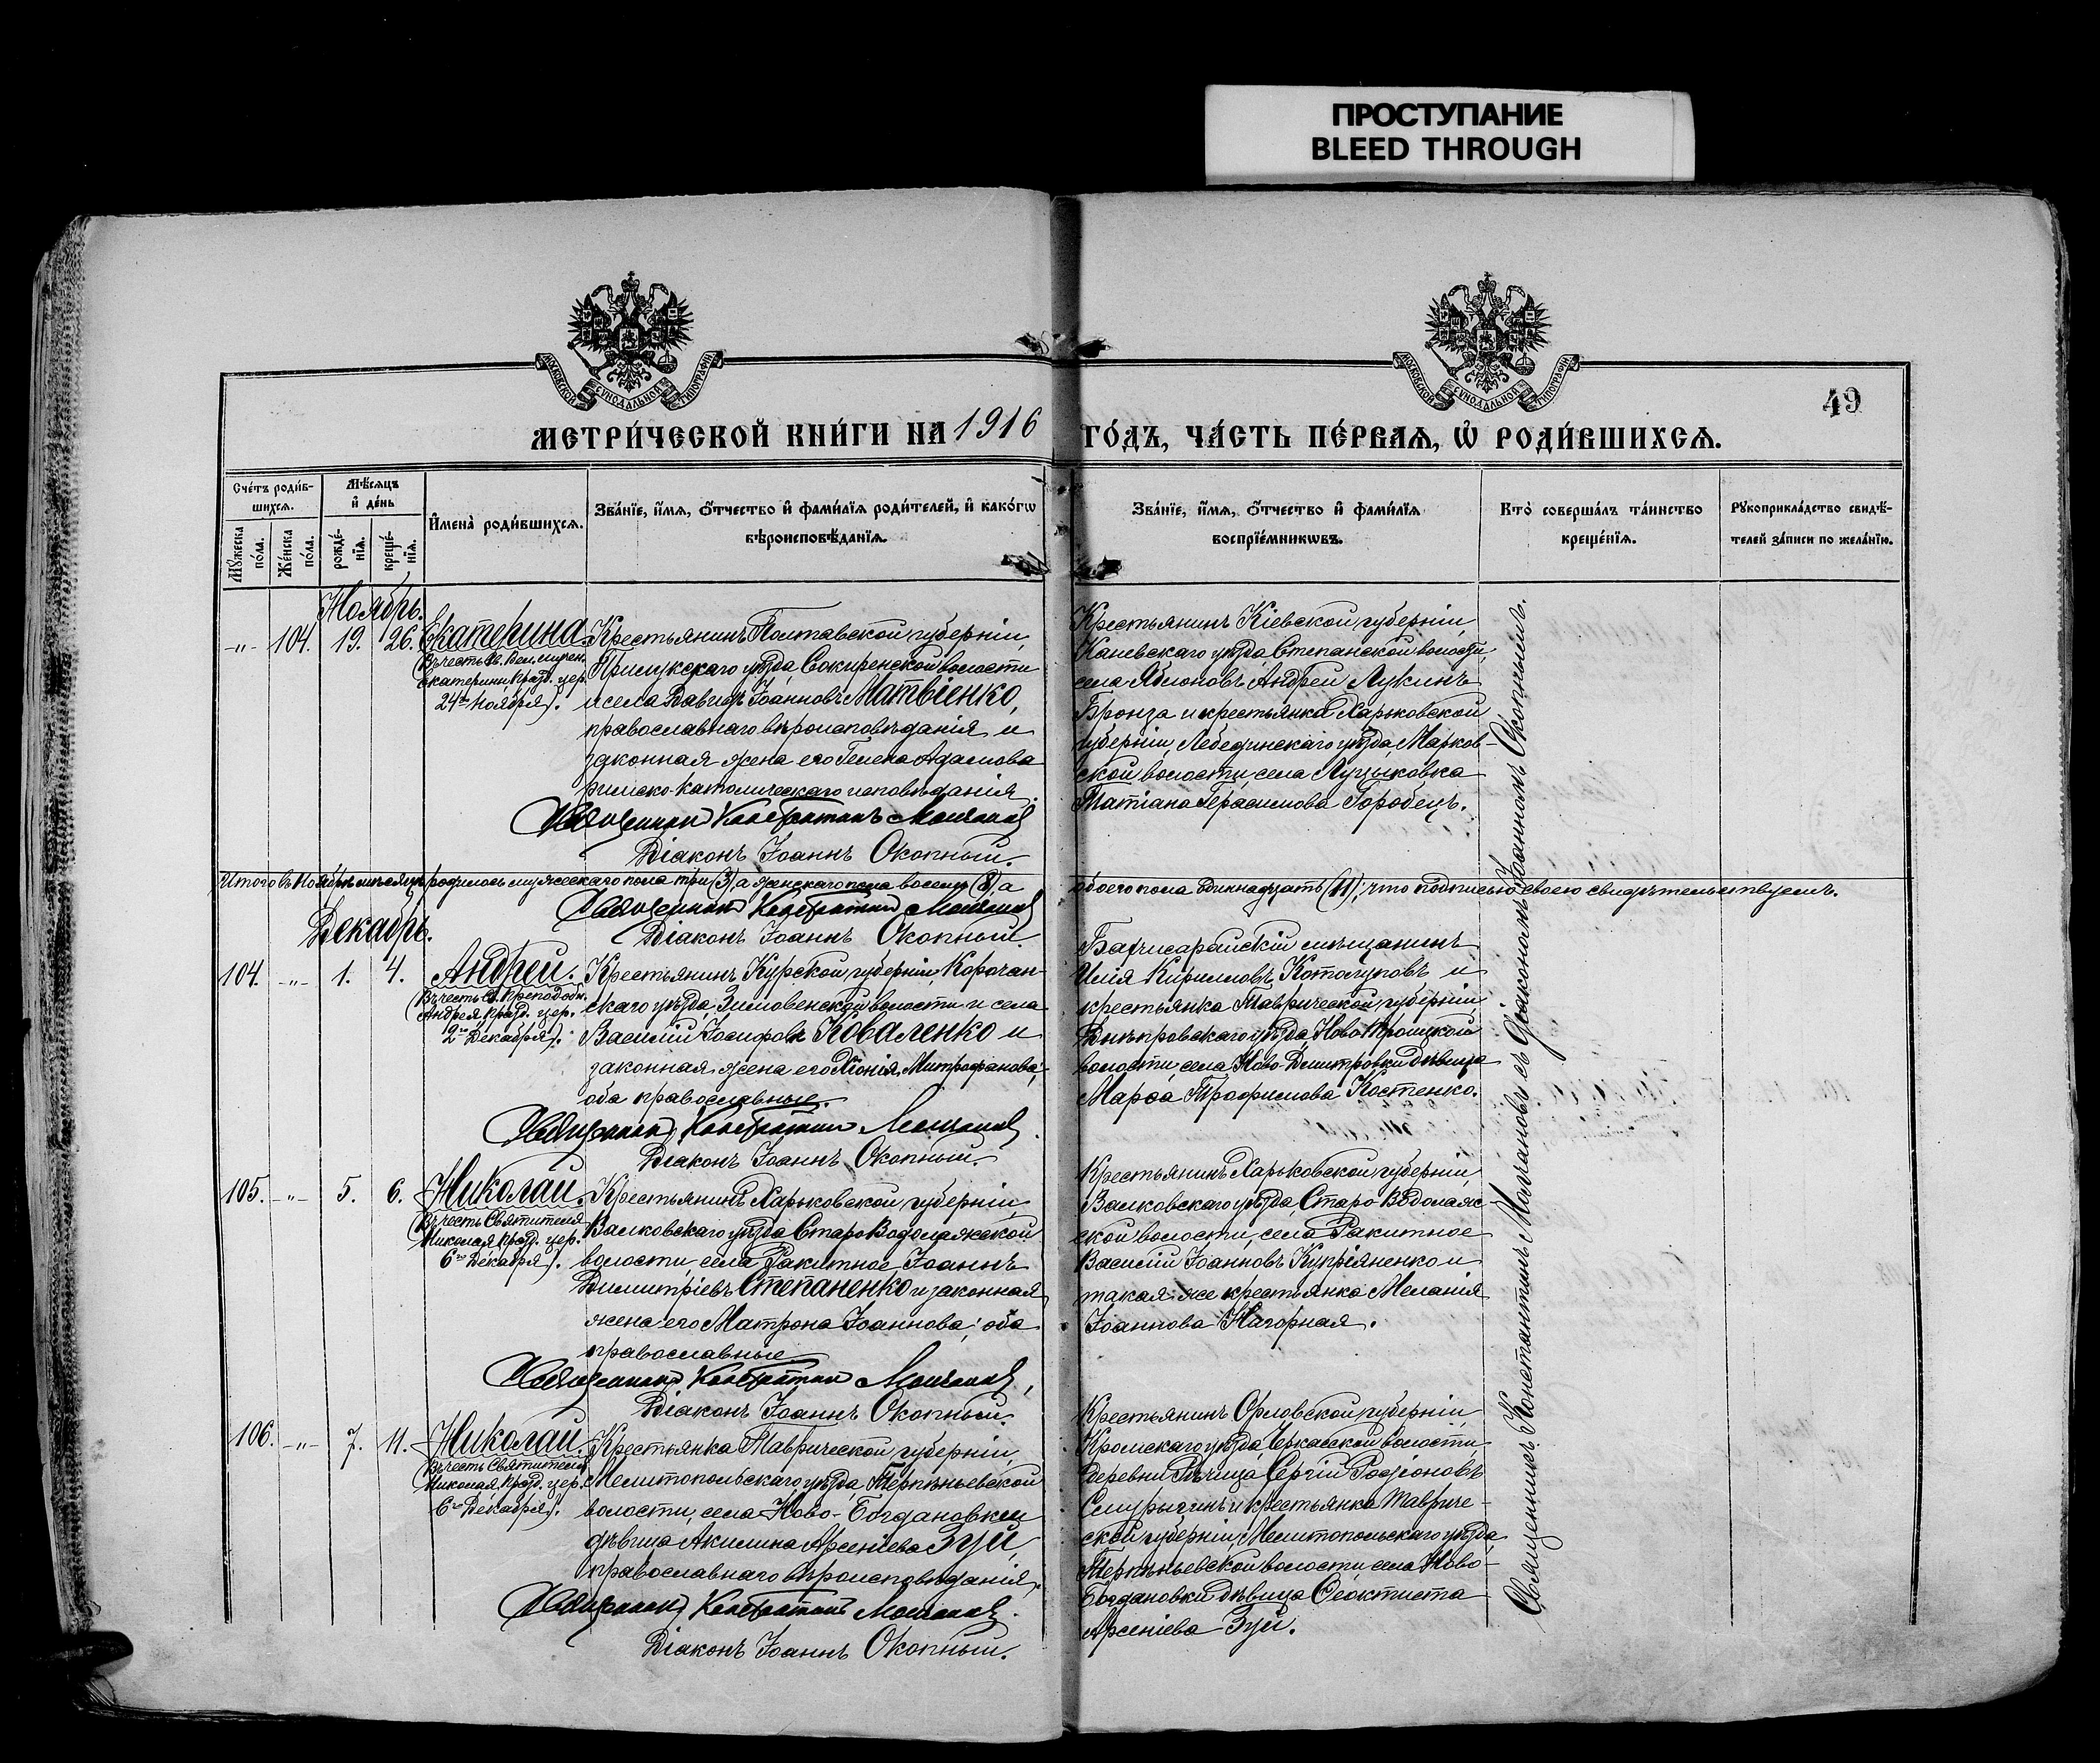 ПРОСТУПАНИЕ
BLEED THROUGH
МОСКОВСКОЙ СѴНОДАЛЬНОЙ ТИПОГРАФІИ
МОСКОВСКОЙ СѴНОДАЛЬНОЙ ТИПОГРАФІИ
49
МЕТРИ́ЧЕСКОЙ КНИ́ГИ НА 1916 ГО́ДЪ, ЧА́СТЬ ПЕ́РВАЯ, Ѡ РОДИ́ВШИХСЯ.
Сче́тъ роди́в-
шихся.
Мѣ́сяцъ
и де́нь
Мꙋ́жеска
по́ла.
Же́нска
по́ла.
рожде́-
нїя.
креще́-
нїя.
И҆мена̀ роди́вшихся.
Зва́нїе, и҆́мя, ѻ҆́тчество и҆ фами́лїя роди́телей, и҆ како́гѡ
вѣроисповѣ́данїя.
Зва́нїе, и҆́мя, ѻ҆́тчество и҆ фами́лїя
воспрїе́мникѡвъ.
Кто̀ соверша́лъ та́инство
креще́нїя.
Рꙋкоприкла́дство свидѣ́-
телей за́писи по жела́нїю.
Ноябрь.
-"- 104. 19. 26. Екатерина
(Въ честь Св. Вел. мучен.
Екатерины, празд. цер.
24го Ноября).
Крестьянинъ Полтавской губерніи,
Прилукскаго уѣзда, Сокиренской волости
и села Давидъ Іоанновъ Матвіенко,
православнаго вѣроисповѣданія и
законная жена его Гелена Адамова
римско-католическаго исповѣданія.
Священникъ Константинъ Молчановъ
Діаконъ Іоаннъ Окопный.
Крестьянинъ Кіевской губерніи,
Каневскаго уѣзда, Степанской волости,
села Яблоновъ Андрей Лукинъ
Бронза и крестьянка Харьковской
губерніи, Лебединскаго уѣзда, Марков-
ской волости, села Луцыковка
Татіана Герасимова Горобецъ.
Итого въ Ноябрѣ мѣсяцѣ родилось мужескаго пола три (3), а женскаго пола восемь (8), а обоего пола одиннадцать (11); что подписью своею свидѣтельствуемъ.
Священникъ Константинъ Молчановъ
Діаконъ Іоаннъ Окопный
Декабрь.
104. -"- 1. 4. Андрей.
(Въ честь Св. Преподобн.
Андрея празд. цер.
2го Декабря).
Крестьянинъ Курской губерніи, Корочан-
скаго уѣзда, Зимовенской волости и села
Василій Іосифовъ Коваленко и
законная жена его Хіонія Митрофанова;
оба православные.
Священникъ Константинъ Молчановъ
Діаконъ Іоаннъ Окопный.
Бахчисарайскій мѣщанинъ
Илія Кирилловъ Котолуповъ и
крестьянка Таврической губерніи,
Днѣпровскаго уѣзда, Ново-Троицкой
волости, села Ново-Дмитровки дѣвица
Марѳа Трофимова Костенко.
105. -"- 5. 6. Николай.
(Въ честь Святителя
Николая празд. цер.
6го Декабря).
Крестьянинъ Харьковской губерніи,
Валковскаго уѣзда, Старо-Водолажской
волости, села Ракитное Іоаннъ
Димитріевъ Степаненко и законная
жена его Матрона Іоаннова; оба
православные
Священникъ Константинъ Молчановъ,
Діаконъ Іоаннъ Окопный.
Крестьянинъ Харьковской губерніи,
Валковскаго уѣзда, Старо-Водолаж-
ской волости, села Ракитное
Василій Іоанновъ Купріяненко и
такая же крестьянка Меланія
Іоаннова Нагорная.
106. -"- 7. 11. Николай.
(Въ честь Святителя
Николая, празд. цер.
6го Декабря).
Крестьянка Таврической губерніи,
Мелитопольскаго уѣзда, Терпѣньевской
волости, села Ново-Богдановки
дѣвица Акилина Арсеніева Зуй,
православнаго вѣроисповѣданія.
Священникъ Константинъ Молчановъ.
Діаконъ Іоаннъ Окопный.
Крестьянинъ Орловской губерніи,
Кромскаго уѣзда, Черкасской волости,
деревни Рѣчица Сергій Родіоновъ
Смурыгинъ и крестьянка Тавриче-
ской губерніи, Мелитопольскаго уѣзда,
Терпѣньевской волости села Ново-
Богдановки дѣвица Ѳеоктиста
Арсеніева Зуй.
Священникъ Константинъ Молчановъ съ Діакономъ Іоанномъ Окопнымъ.